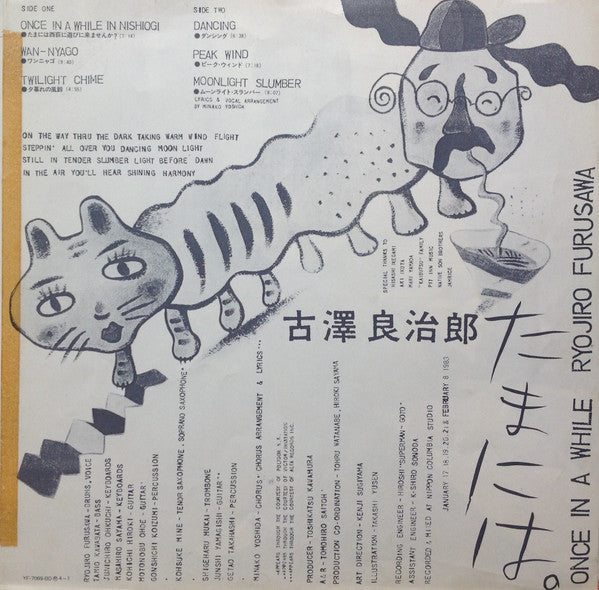 SIDE ONE
ONCE IN A WHILE IN NISHIOGI
●たまには西荻に遊びに来ませんか?
WAN-NYAGO
●ワンニャゴ
TWILIGHT CHIME
●夕暮れの風鈴
SIDE TWO
DANCING
●ダンシング
PEAK WIND
●ピーク・ウィンド
MOONLIGHT SLUMBER
●ムーンライト・スランバー
LYRICS & VOCAL ARRANGEMENT
BY MINAKO YOSHIDA
ON THE WAY THRU THE DARK TAKING WARM WIND FLIGHT
STEPPIN' ALL OVER YOU DANCING MOON LIGHT
STILL IN TENDER SLUMBER LIGHT BEFORE DAWN
IN THE AIR YOU'LL HEAR SHINING HARMONY
SPECIAL THANKS TO
HISASHI IKEGAMI
AKI IKUTA
MARI YAMADA
"KAIBUTSU" FAMILY
PIT INN MUSIC
NATIVE SON BROTHERS
JAMRICE
古澤良治郎
たまには。
ONCE IN A WHILE RYOJIRO FURUSAWA
RYOJIRO FURUSAWA-DRUMS, VOICE
TAMIO KAWABATA-BASS
JUNICHIRO OHKUCHI-KEYBOARDS
MASAHIRO SAYAMA-KEYBOARDS
KOHICHI HIROKI-GUITAR
MOTONOBU OHDE-GUITAR
GONSHICHI KOIZUMI-PERCUSSION
KOHSUKE MINE-TENOR SAXOPHONE, SOPRANO SAXOPHONE*
SHIGEHARU MUKAI-TROMBONE
JUNSHI YAMAGISHI-GUITAR**
GETAO TAKAHASHI-PERCUSSION
MINAKO YOSHIDA-CHORUS, CHORUS ARRANGEMENT & LYRICS***
PRODUCER-TOSHIKATSU KAWAMURA
A&R-TOMOHIRO SAITOH
PRODUCTION CO-ORDINATION-TOHRU WATANABE, HIROKI SAYAMA
ART DIRECTION-KENJI SUGIYAMA
ILLUSTRATION-TAKASHI YUSEN
RECORDING ENGINEER-HIROSHI "SUPERMAN" GOTO
ASSISTANT ENGINEER-K-SHIRO SONODA
RECORDED & MIXED AT NIPPON COLUMBIA STUDIO